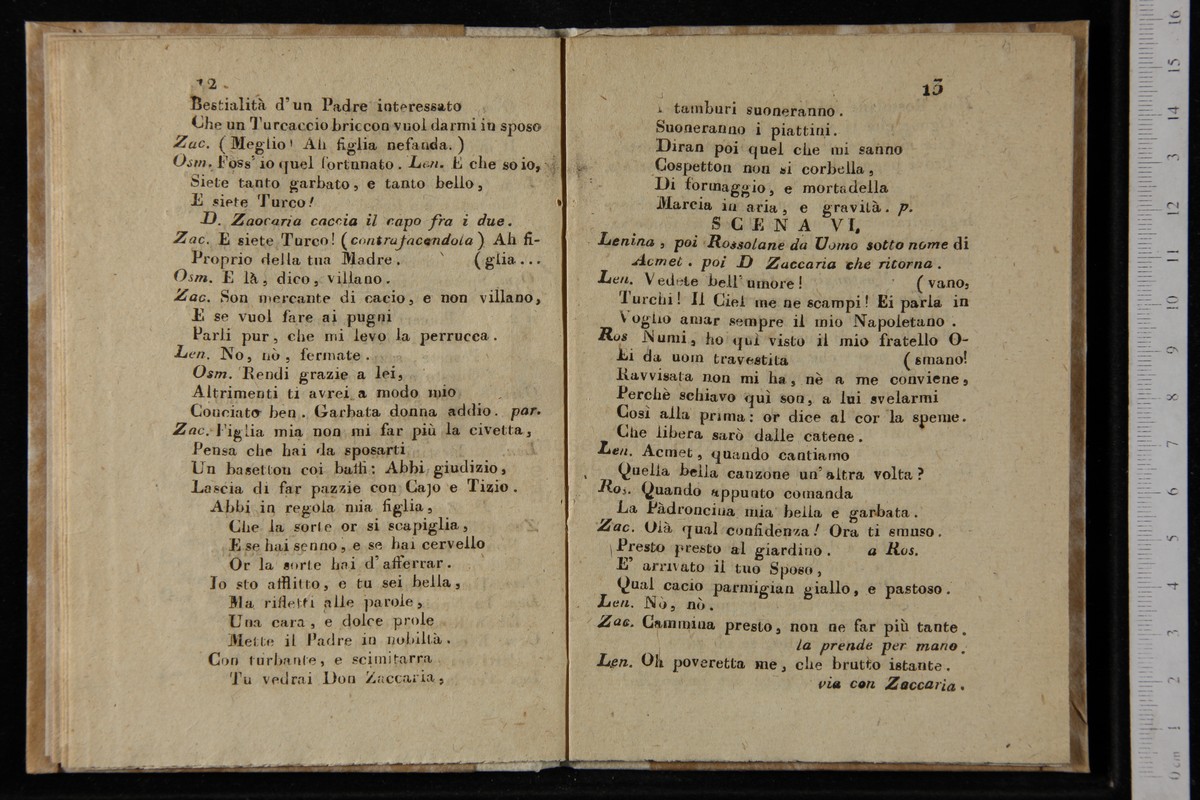 12
Bestialità d'un Padre interessato
Che un Turcaccio briccon vuol darmi in sposo
Zac. (Meglio! Ah figlia nefanda.)
Osm. Foss' io quel fortunato. Len. E che so io,
Siete tanto garbato, e tanto bello,
E siete Turco!
D. Zaccaria caccia il capo fra i due.
Zac. E siete Turco! (contrafacendola) Ah fi-
Proprio della tua Madre. (glia...
Osm. E là, dico, villano.
Zac. Son mercante di cacio, e non villano,
E se vuol fare ai pugni
Parli pur, che mi levo la perrucca.
Len. No, nò, fermate.
Osm. Rendi grazie a lei,
Altrimenti ti avrei a modo mio
Conciato ben. Garbata donna addio. par.
Zac. Figlia mia non mi far più la civetta,
Pensa che hai da sposarti
Un basetton coi baffi: Abbi giudizio,
Lascia di far pazzie con Cajo e Tizio.
Abbi in regola mia figlia,
Che la sorte or si scapiglia,
E se hai senno, e se hai cervello
Or la sorte hai d'afferrar.
Io sto afflitto, e tu sei bella,
Ma rifletti alle parole,
Una cara, e dolce prole
Mette il Padre in nobiltà.
Con turbante, e scimitarra
Tu vedrai Don Zaccaria,
13
I tamburi suoneranno.
Suoneranno i piattini.
Diran poi quel che mi sanno
Cospetton non si corbella,
Di formaggio, e mortadella
Marcia in aria, e gravità. p.
SCENA VI.
Lenina, poi Rossolane da Uomo sotto nome di
Acmet. poi D Zaccaria che ritorna.
Len. Vedete bell' umore! (vano,
Turchi! Il Ciel me ne scampi! Ei parla in
Voglio amar sempre il mio Napoletano.
Ros Numi, ho quì visto il mio fratello O-
Ei da uom travestita (smano!
Ravvisata non mi ha, nè a me conviene,
Perchè schiavo quì son, a lui svelarmi
Così alla prima: or dice al cor la speme.
Che libera sarò dalle catene.
Len. Acmet, quando cantiamo
Quella bella canzone un' altra volta?
Ros. Quando appunto comanda
La Padroncina mia bella e garbata.
Zac. Olà qual confidenza! Ora ti smuso.
Presto presto al giardino. a Ros.
E' arrivato il tuo Sposo,
Qual cacio parmigian giallo, e pastoso.
Len. Nò, nò.
Zac. Cammina presto, non ne far più tante.
la prende per mano.
Len. Oh poveretta me, che brutto istante.
via con Zaccaria.